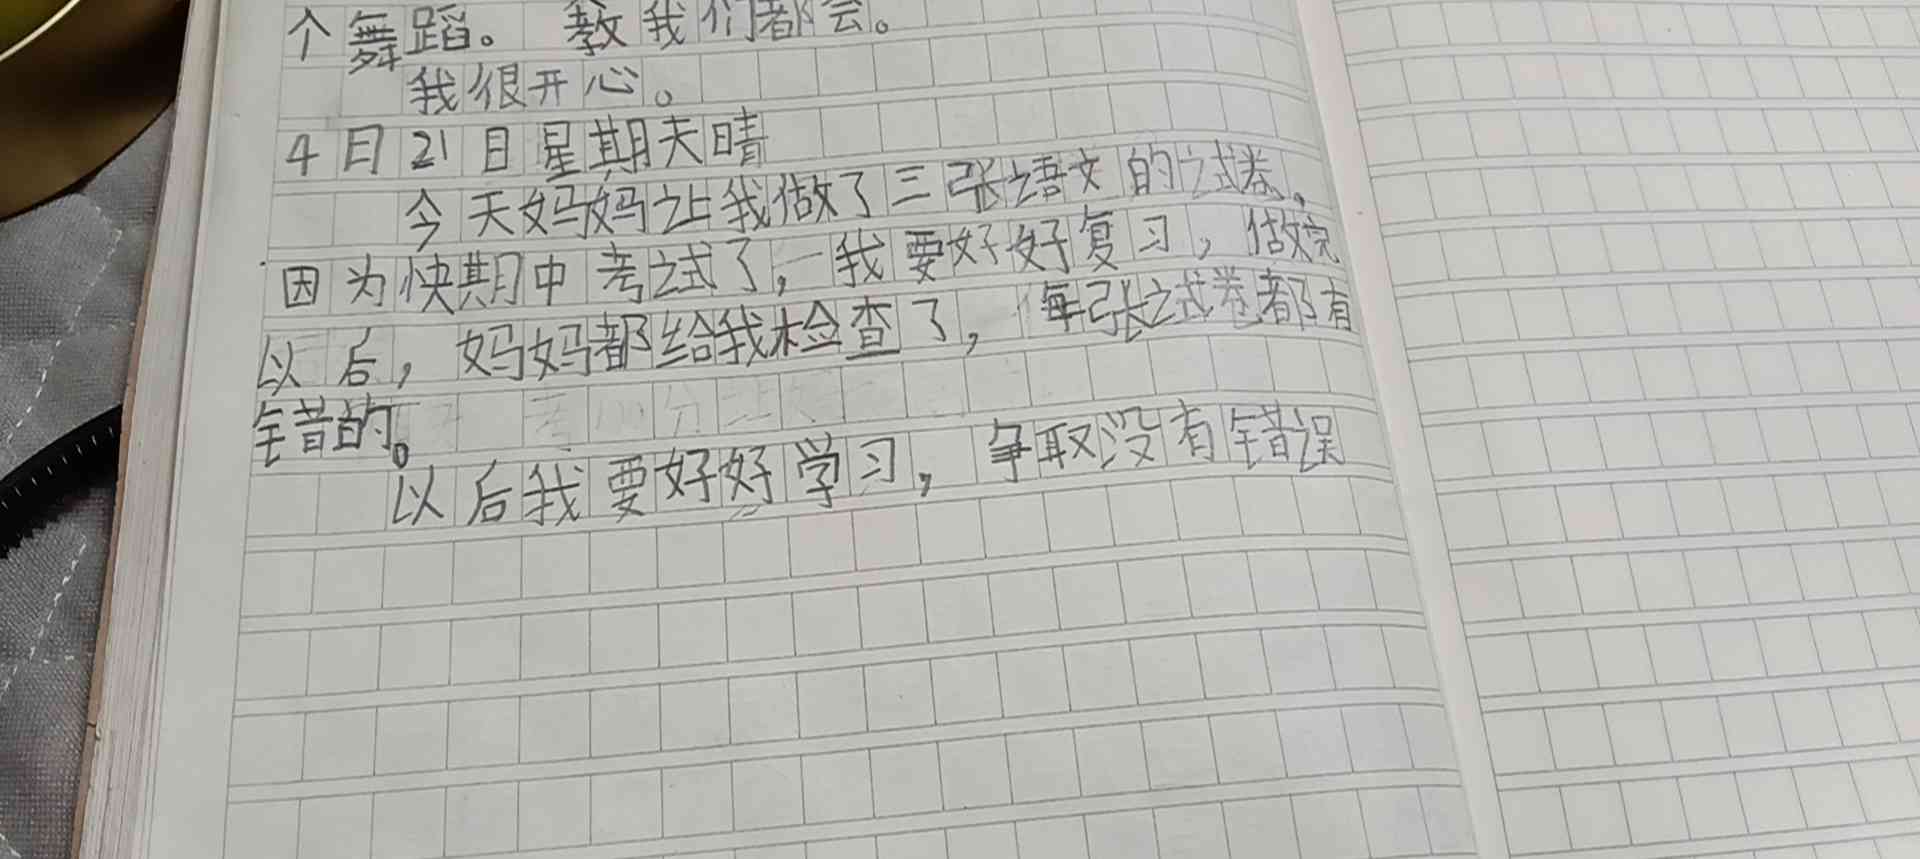 个舞蹈。教我们都会。
我很开心。
4月21日星期天晴
今天妈妈让我做了三张语文的试卷、
因为快期中考试了，我要好好复习，做完
以后，妈妈都给我检查了，每张试卷都有
错的。
以后我要好好学习，争取没有错误